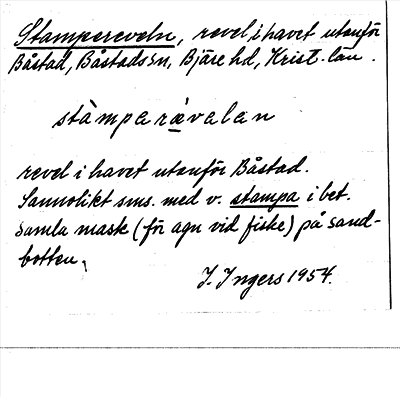 Stampereveln, revel i havet utanför
Båstad, Båstads sn, Bjäre hd, Krist. län.
stàmparävalan
revel i havet utanför Båstad.
Sannolikt sms. med v. stampa i bet.
samla mask (för agn vid fiske) på sand-
botten.
I. Ingers 1954.